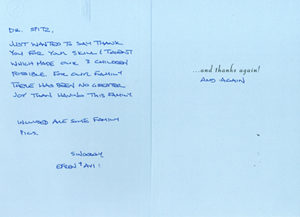 DR. SPITZ,
JUST WANTED TO SAY THANK
YOU FOR YOUR SKILL & TALENT
WHICH MADE OUR 3 CHILDREN
POSSIBLE. FOR OUR FAMILY
THERE HAS BEEN NO GREATER
JOY THAN HAVING THIS FAMILY.
ARE SOME FAMILY
PICS.
SINCERELY,
EFREN & AVI!
...and thanks again!
AND AGAIN